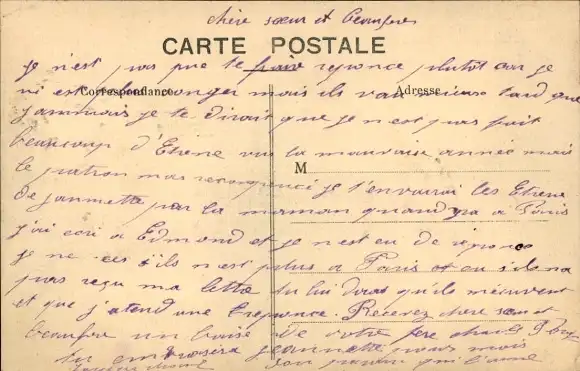 chère sœur et beaufrère
CARTE POSTALE
je n'est pas pue te faire reponce plutôt car je
Correspondance
Adresse
mais ils vau mieux tard que
jammais je te dirait que je n'est pas fait
beaucoup d'Etrene vue la mauvaise année mais
M
le patron mas recompencé je t'envairai les Etrene
de jeannette par la maman quand va a Paris
j'ai ecri a Edmond et je n'est eu de reponce
je ne ces s'ils n'est plus a Paris ou s'ils na
pas reçu ma lettre tu lui diras qu'ils m'ecrivent
et que j'atend une reponce Recevez chère sœur et
beaufrere un baisé de votre frère charles
tu embrassera jeannette pour mois
son parain qui l'aime